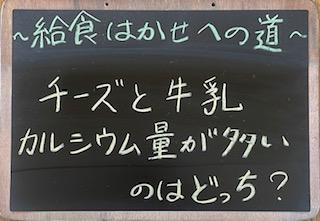 ~給食はかせへの道~
チーズと牛乳
カルシウム量が多い
のはどっち？